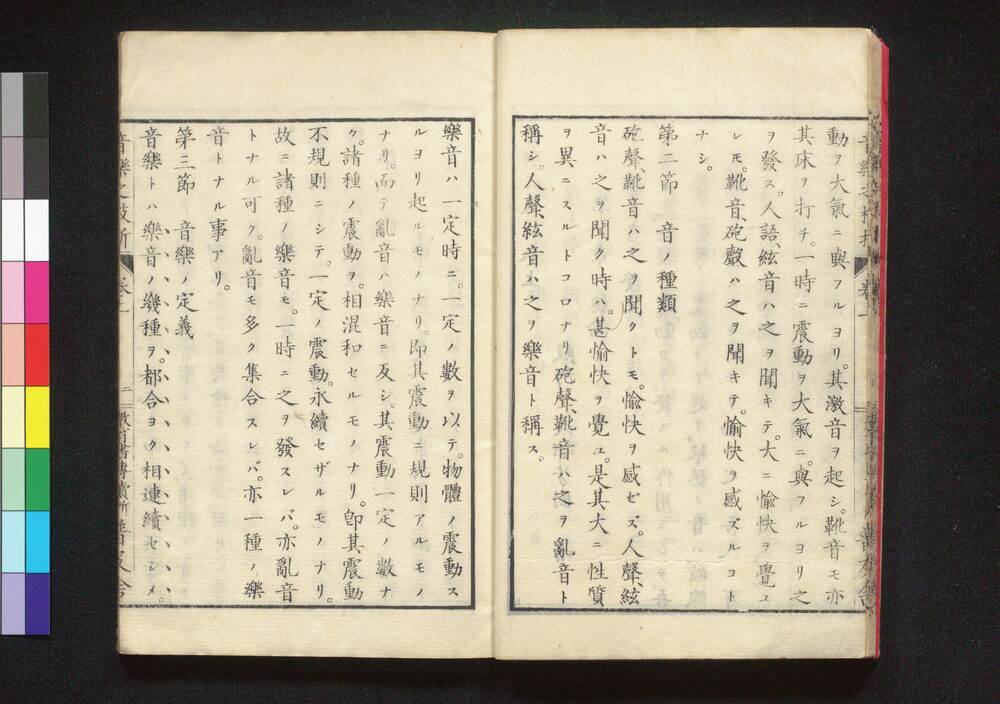 動ヲ大氣ニ與フルヨリ。其激音ヲ起シ。靴音モ亦
其床ヲ打チ。一時ニ震動ヲ大氣ニ。與フルヨリ之
ヲ發ス。人語、絃音ハ之ヲ聞キテ。大ニ愉快ヲ覺ユ
レ𪜈。靴音、砲聲ハ之ヲ聞キテ。愉快ヲ感ズルコト
ナシ。
第二節　音ノ種類
砲聲、靴音ハ之ヲ聞クトモ。愉快ヲ感ゼズ。人聲、絃
音ハ之ヲ聞ク時ハ。甚愉快ヲ覺ユ。是其大ニ性質
ヲ異ニスルトコロナリ。砲聲、靴音ハ之ヲ亂音ト
稱シ。人聲、絃音ハ之ヲ樂音ト稱ス。
樂音ハ一定時ニ。一定ノ數ヲ以テ。物體ノ震動ス
ルヨリ起ルモノナリ。即其震動ニ規則アルモノ
ナリ。而テ亂音ハ樂音ニ反シ。其震動一定ノ數ナ
ク。諸種ノ震動ヲ。相混和セルモノナリ。即其震動
不規則ニシテ。一定ノ震動。永續セザルモノナリ。
故ニ諸種ノ樂音モ。一時ニ之ヲ發スレバ。亦亂音
トナル可ク。亂音モ多ク集合スレバ。亦一種ノ樂
音トナル事アリ。
第三節　音樂ノ定義
音樂トハ樂音ノ幾種ヲ。都合ヨク相連續セシメ。
音樂之枝折　卷一　二　敎育書專賣所普及舍